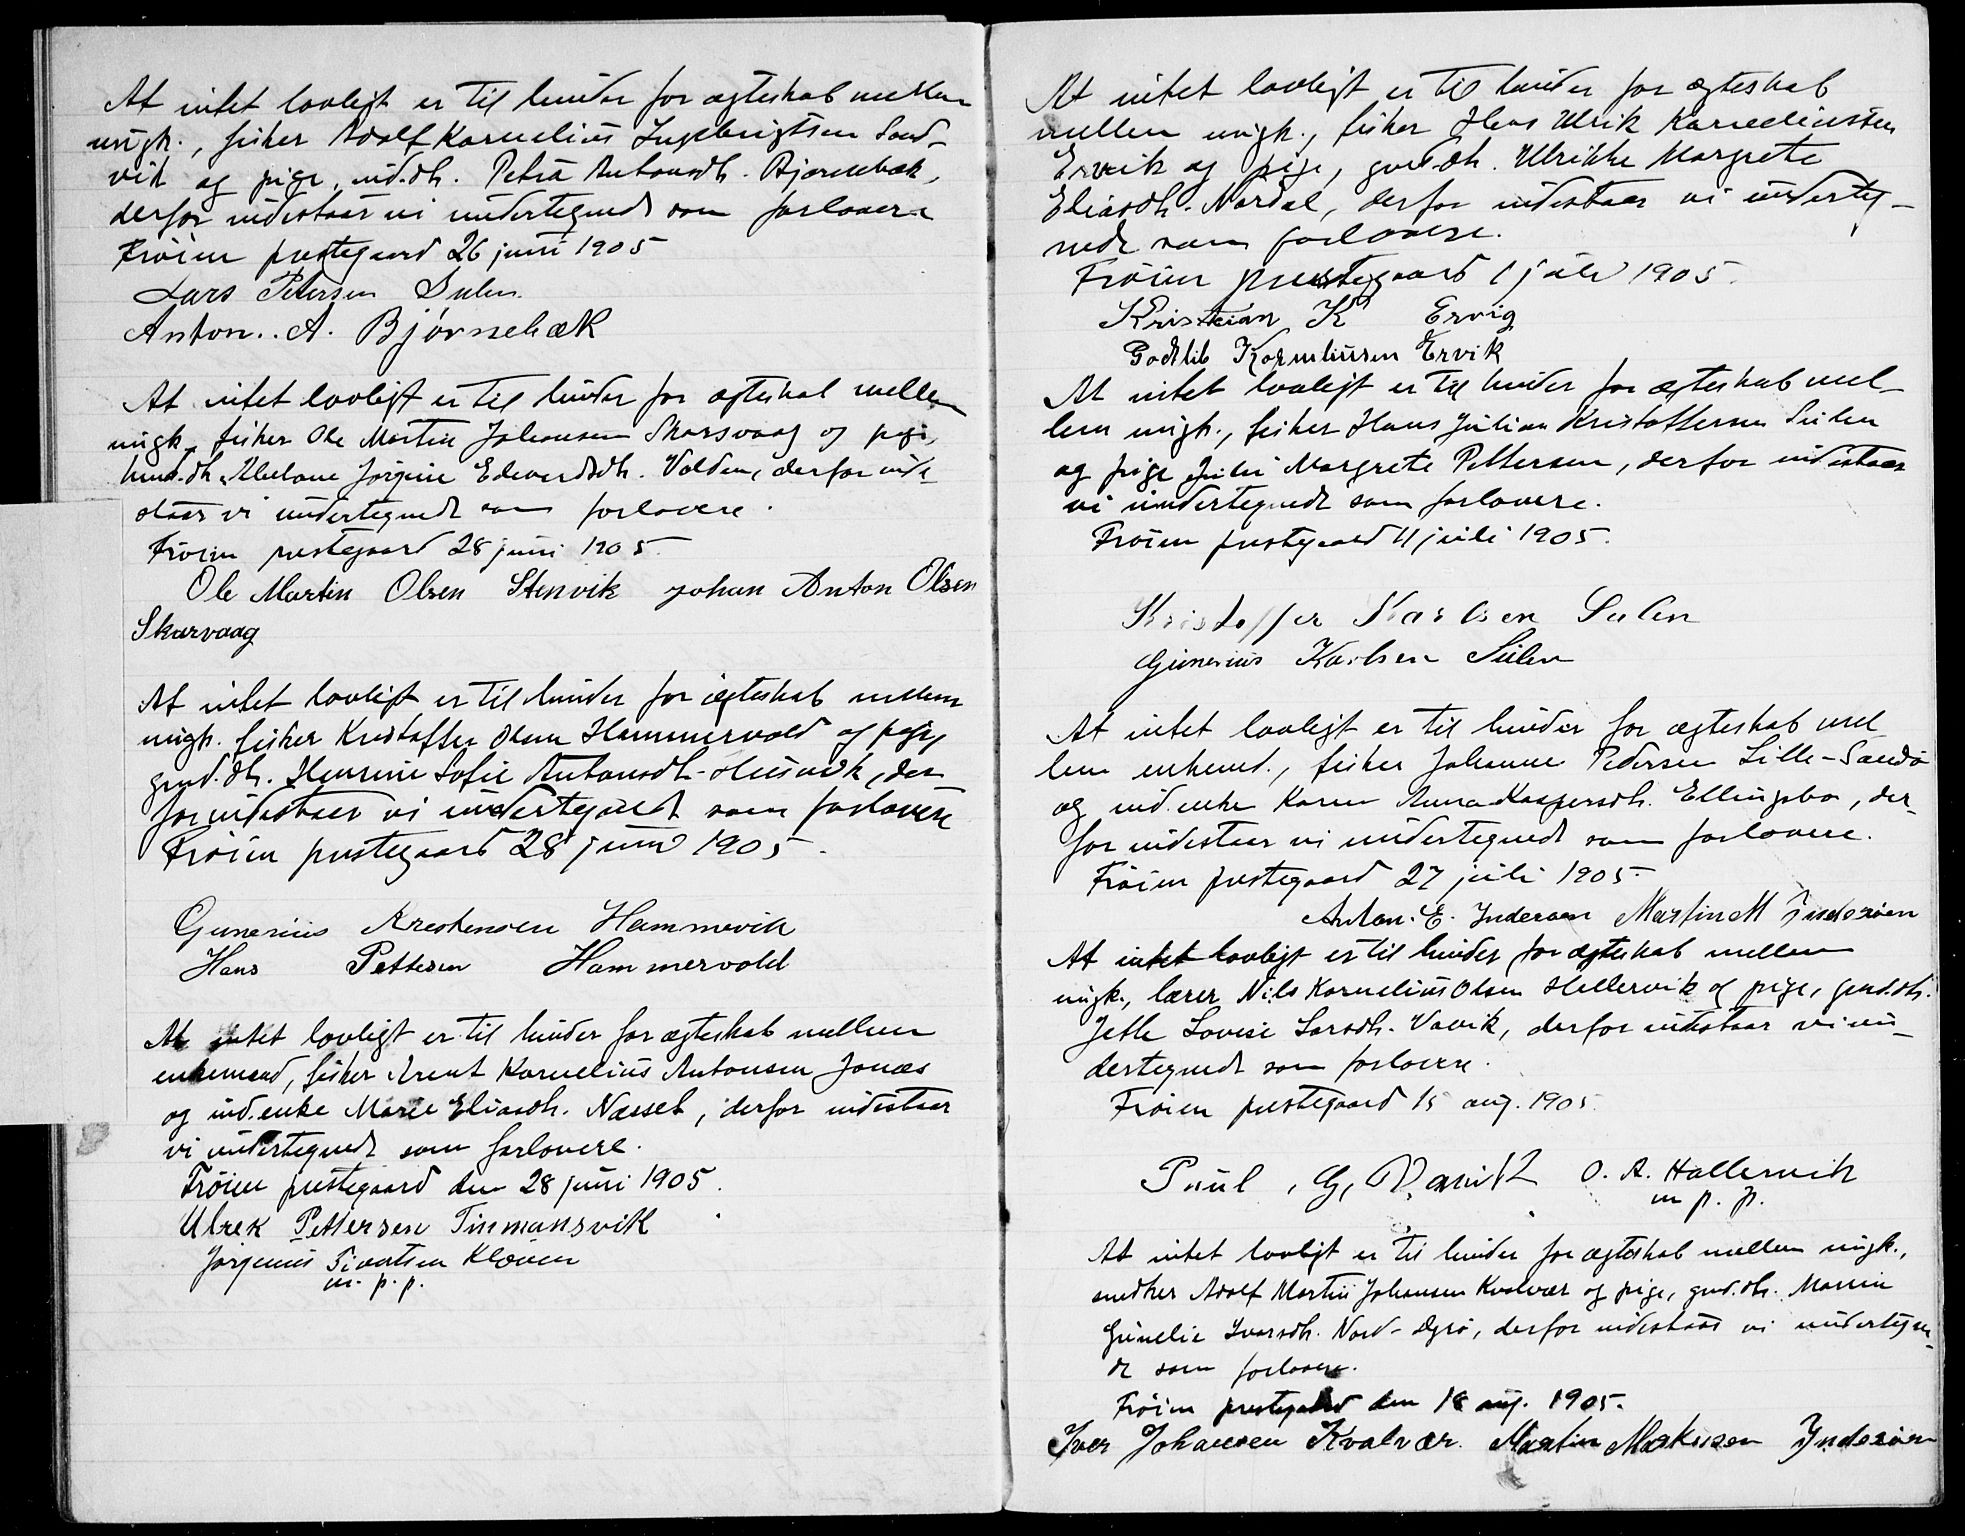 At intet lovligt er til hinder for ægteskab mellem
ungk., fisker Adolf Kornelius Ingebrigtsen Sand-
vik og pige, ind.dtr. Petra Antonsdtr. Bjørnebæk,
derfor indestaar vi undertegnede som forlovere
Frøien prestegaard 26 juni 1905
Lars Petersen Sulen.
Anton.. A. Bjørnebæk
At intet lovligt er til hinder for ægteskab mellem
ungk., fisker Ole Martin Johansen Skarsvaag og pige,
Jørgine Edvardsdtr. Valden, derfor inde-
staar vi undertegnede som forlovere.
Frøien prestegaard 28 juni 1905.
Ole Martin Olsen Stenvik Johan Anton Olsen
Skarvaag
At intet lovligt er til hinder for ægteskab mellem
ungk. fisker Kristoffer Olsen Hammervold og pige,
gmd.dtr. Sofie Antonsdtr. Husvik, der
for indestaar vi undertegnede som forlovere
Frøien prestegaard 28 juni 1905.
Gunerius Krestensen Hammervik
Hans Pettersen Hammervold
At intet lovligt er til hinder for ægteskab mellem
enkemand, fisker Arent Kornelius Antonsen
og ind.enke Marie Eliasdtr. Nesset, derfor indestaar
vi undertegnede som forlovere.
Frøien prestegaard den 28 juni 1905.
Ulrek Pettersen Tinmansvik
Jørginus Sivertsen
m. p. p.
At intet lovligt er til hinder for ægteskab
mellem ungk., fisker Ulrik Korneliussen
Ervik og pige, gmd.dtr. Ulrikke Margrete
Eliasdtr. Nordal, derfor indestaar vi underteg-
nede som forlovere.
Frøien prestegaard 1 juli 1905.
Kristian K Ervig
Godtlib Kornliusen Ervik
At intet lovligt er til hinder for ægteskab mel-
lem ungk., fisker Hans Julian Kristoffersen Sulen
og pige Margrete Pettersen, derfor indestaar
vi undertegnede som forlovere.
Frøien prestegaard 11 juli 1905.
Kristoffer Karlsen Sulen
Gunerius Karlsen Sulen
At intet lovligt er til hinder for ægteskab mel
lem enkemd., fisker Johannes Pedersen Lille-Sandø
og ind.enke Karen Anna Kaspersdtr. Ellingsbo, der-
for indestaar vi undertegnede som forlovere.
Frøien prestegaard 27 juli 1905.
Anton. E. Inderøen Martin M Inderøen
At intet lovligt er til hinder for ægteskab mellem
ungk., lærer Nils Kornelius Olsen Hellervik og pige, gmd.dtr.
Jette Lovise Larsdtr. Vavik, derfor indestaar vi un-
dertegnede som forlovere.
Frøien prestegaard 15 aug. 1905.
Paul G. Vavik O. A. Hallervik
m. p. p.
At intet lovligt er til hinder for ægteskab mellem ungk.,
snedker Adolf Martin Johansen Kvalvær og pige, gmd.dtr.
Ivarsdtr. Nord-Dyrø, derfor indestaar vi undertegne-
de som forlovere.
Frøien prestegaard den 18 aug. 1905.
Iver Johansen Kvalvær. Martin Markusen Inderøen